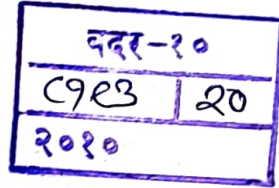 वदर-१०
८१९३ २०
२०१०